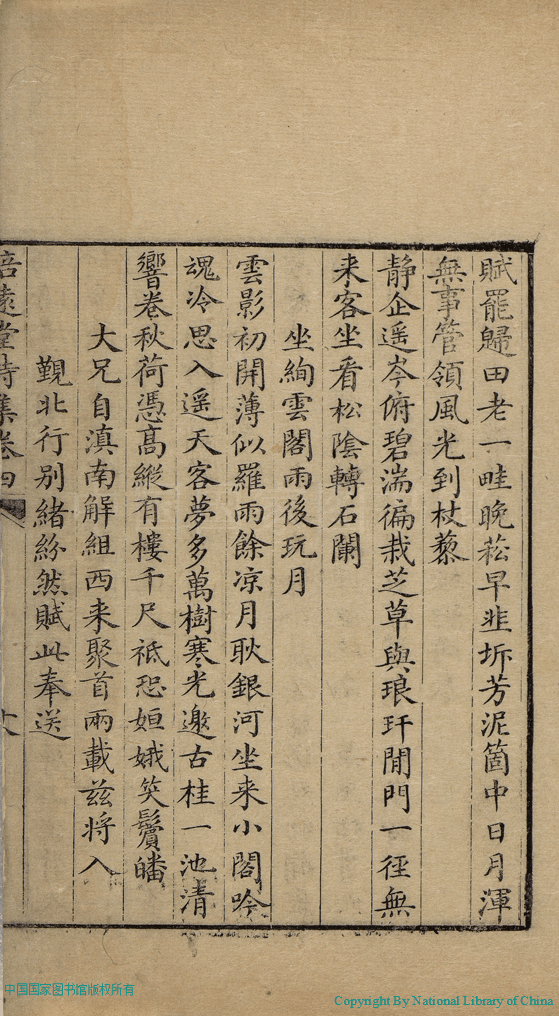 賦罷歸田老一畦晚菘早韭坼芳泥箇中日月渾
無事管領風光到杖藜
静企遥岑俯碧湍徧栽芝草與琅玕閒門一徑無
来客坐看松陰轉石闌
坐絢雲閣雨後玩月
雲影初開薄似羅雨餘凉月耿銀河坐来小閣吟
魂冷思入遥天客夢多萬樹寒光邀古桂一池清
響卷秋荷憑高縱有樓千尺祗恐姮娥笑鬢皤
大兄自滇南解組西来聚首兩載兹將入
覲北行别緒紛然賦此奉送
培遠堂詩集卷四
中国国家图书馆版权所有
Copyright By National Library of China